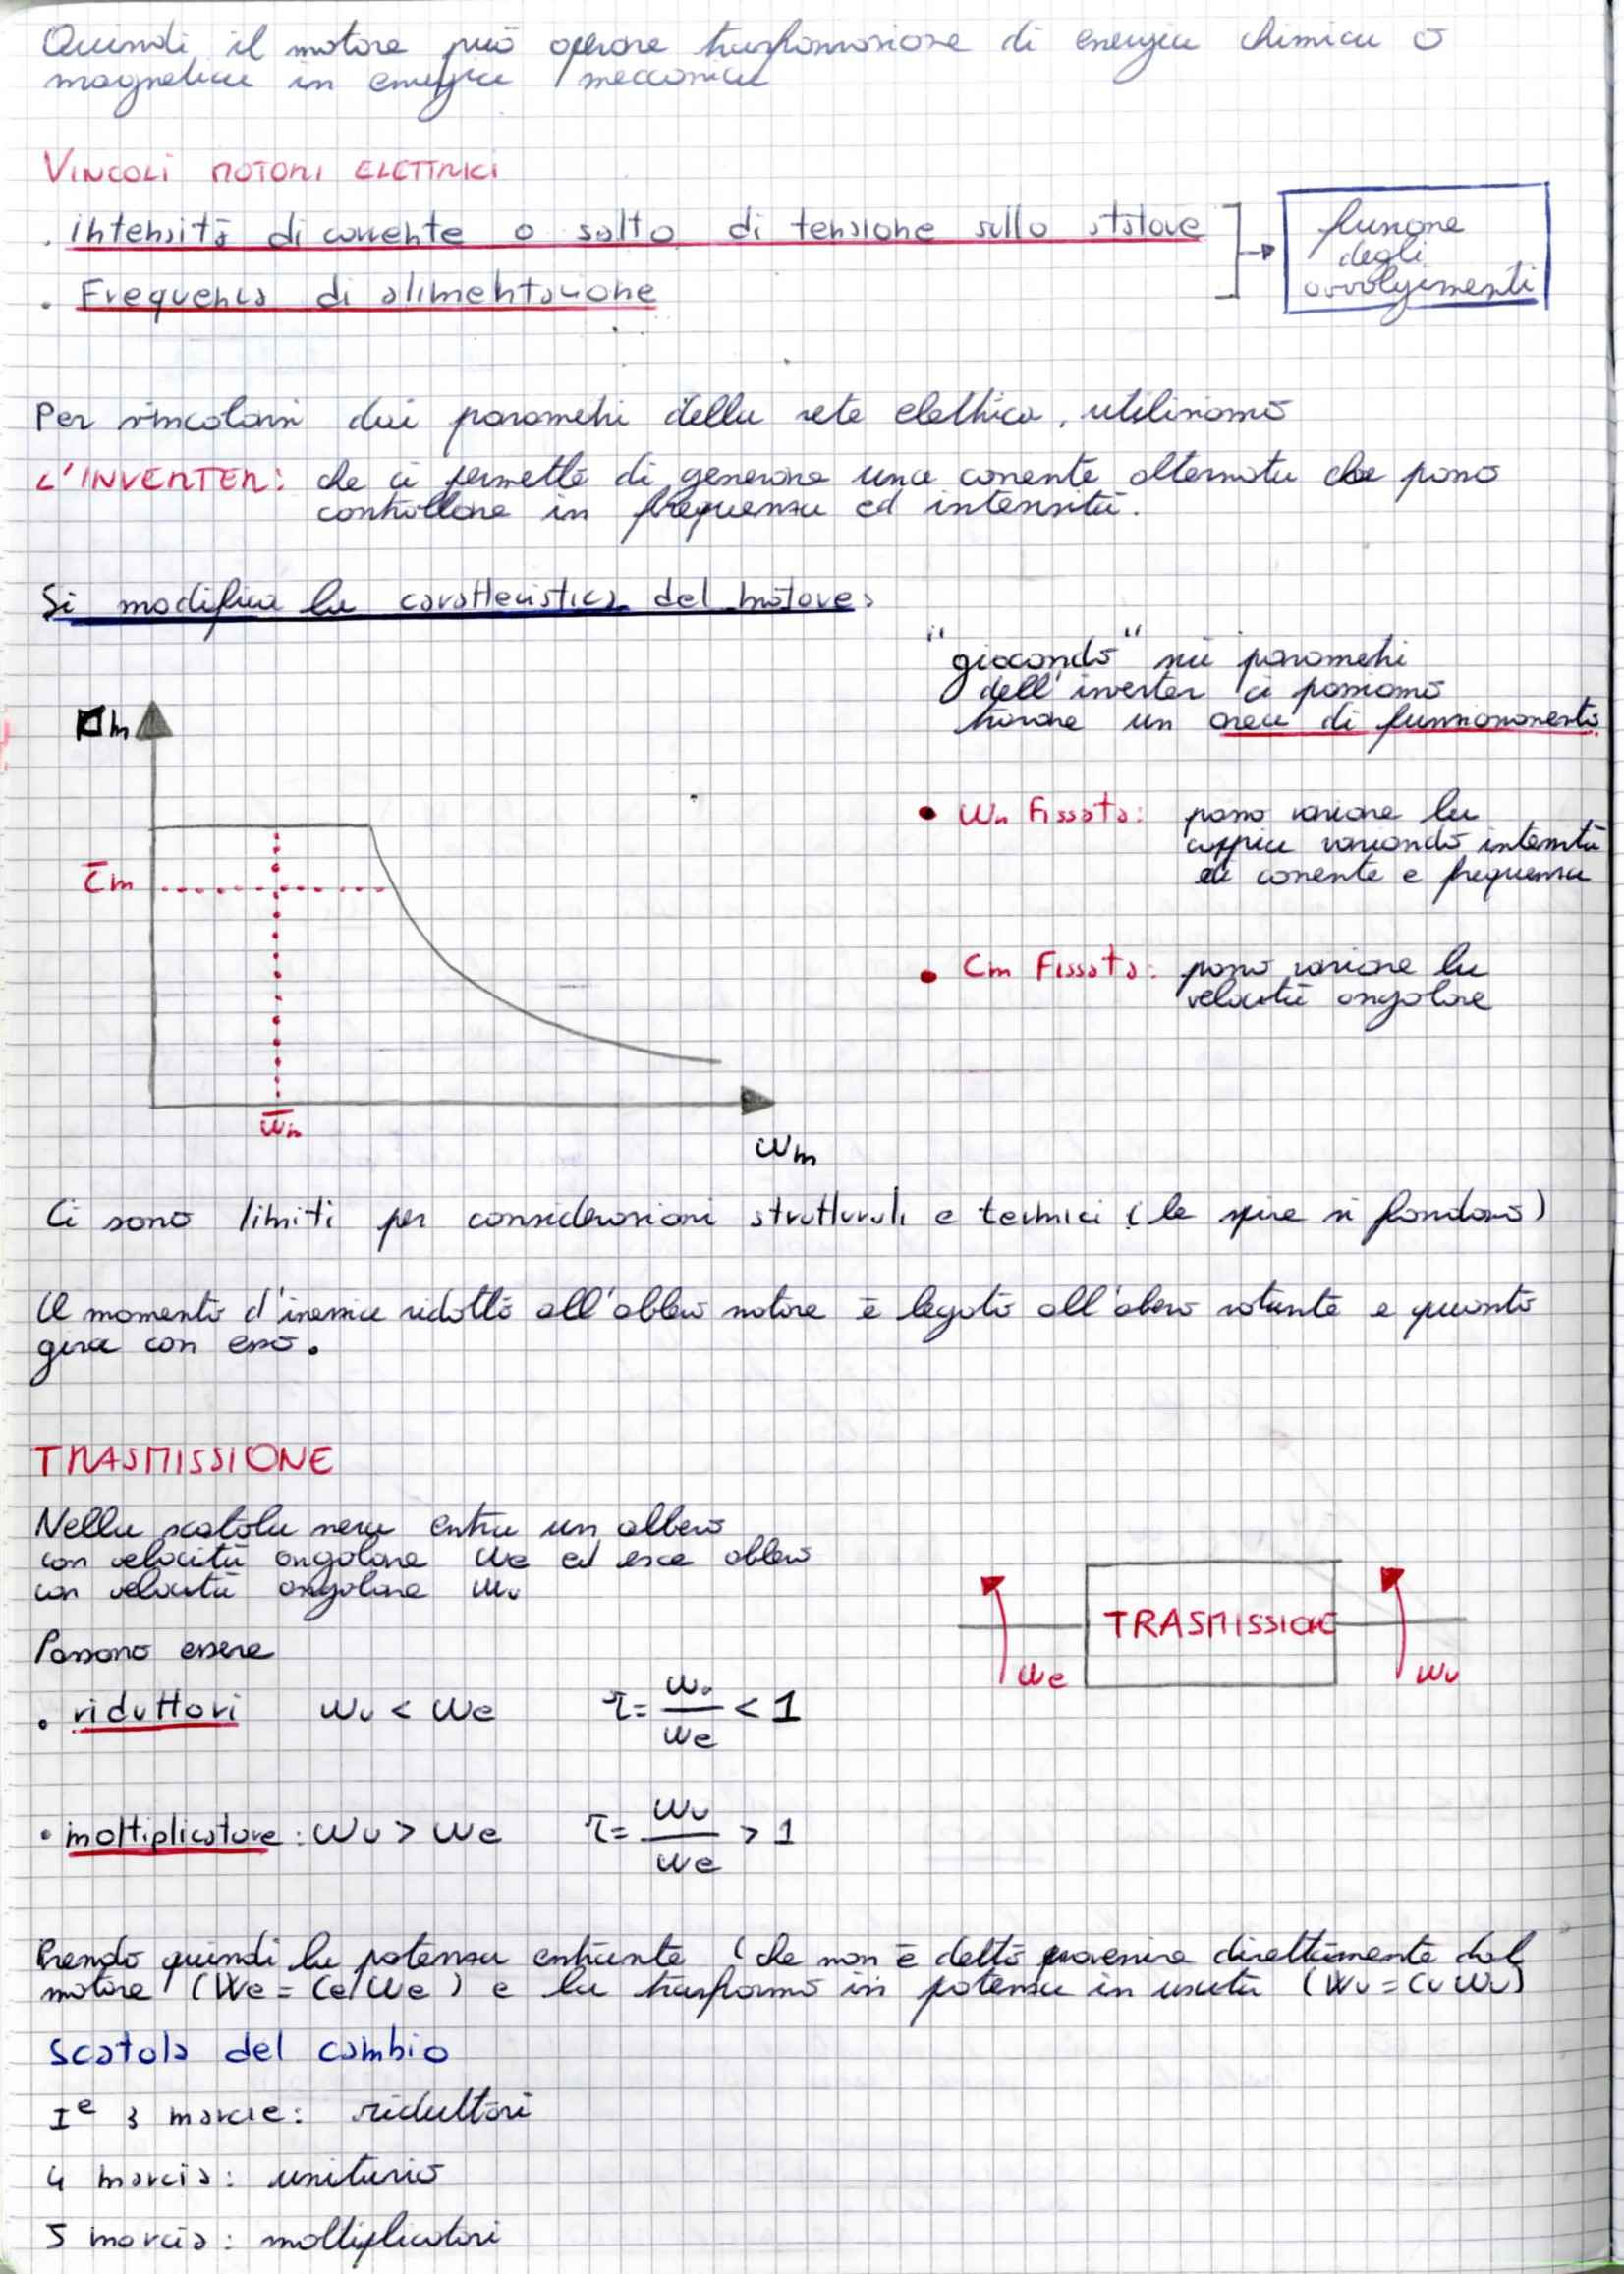 Quindi il motore può operare trasformazione di energia chimica o
magnetica in energia meccanica
VINCOLI MOTORI ELETTRICI
. intensità di corrente o salto di tensione sullo statore
. Frequenza di alimentazione
fusione
degli
avvolgimenti
Per svincolarsi dai parametri della rete elettrica, utilizziamo
L'INVERTER: che ci permette di generare una corrente alternata che posso
controllare in frequenza ed intensità.
Si modifica la caratteristica del motore:
"giocando" sui parametri
dell'inverter ci possiamo
trovare un area di funzionamento.
Cm
C̄m
• ωm Fissata: posso variare la
coppia variando intensità
di corrente e frequenza
• Cm Fissata: posso variare la
velocità angolare
ω̄m
ωm
Ci sono limiti per considerazioni strutturali e termici (le spire si fondono)
Il momento d'inerzia ridotto all'albero motore è legato all'albero rotante e quanto
gira con esso.
TRASMISSIONE
Nella scatola nera entra un albero
con velocità angolare ωe ed esce albero
con velocità angolare ωu
TRASMISSIONE
ωe
ωu
Possono essere
. riduttori ωu < ωe τ = ωu/ωe < 1
• moltiplicatore: ωu > ωe τ = ωu/ωe > 1
Prendo quindi la potenza entrante (che non è detto provenire direttamente dal
motore (We = Ce ωe) e la trasformo in potenza in uscita (Wu = Cu ωu)
Scatola del cambio
Ie 3 marcie: riduttori
4 marcia: unitario
5 marcia: moltiplicatori